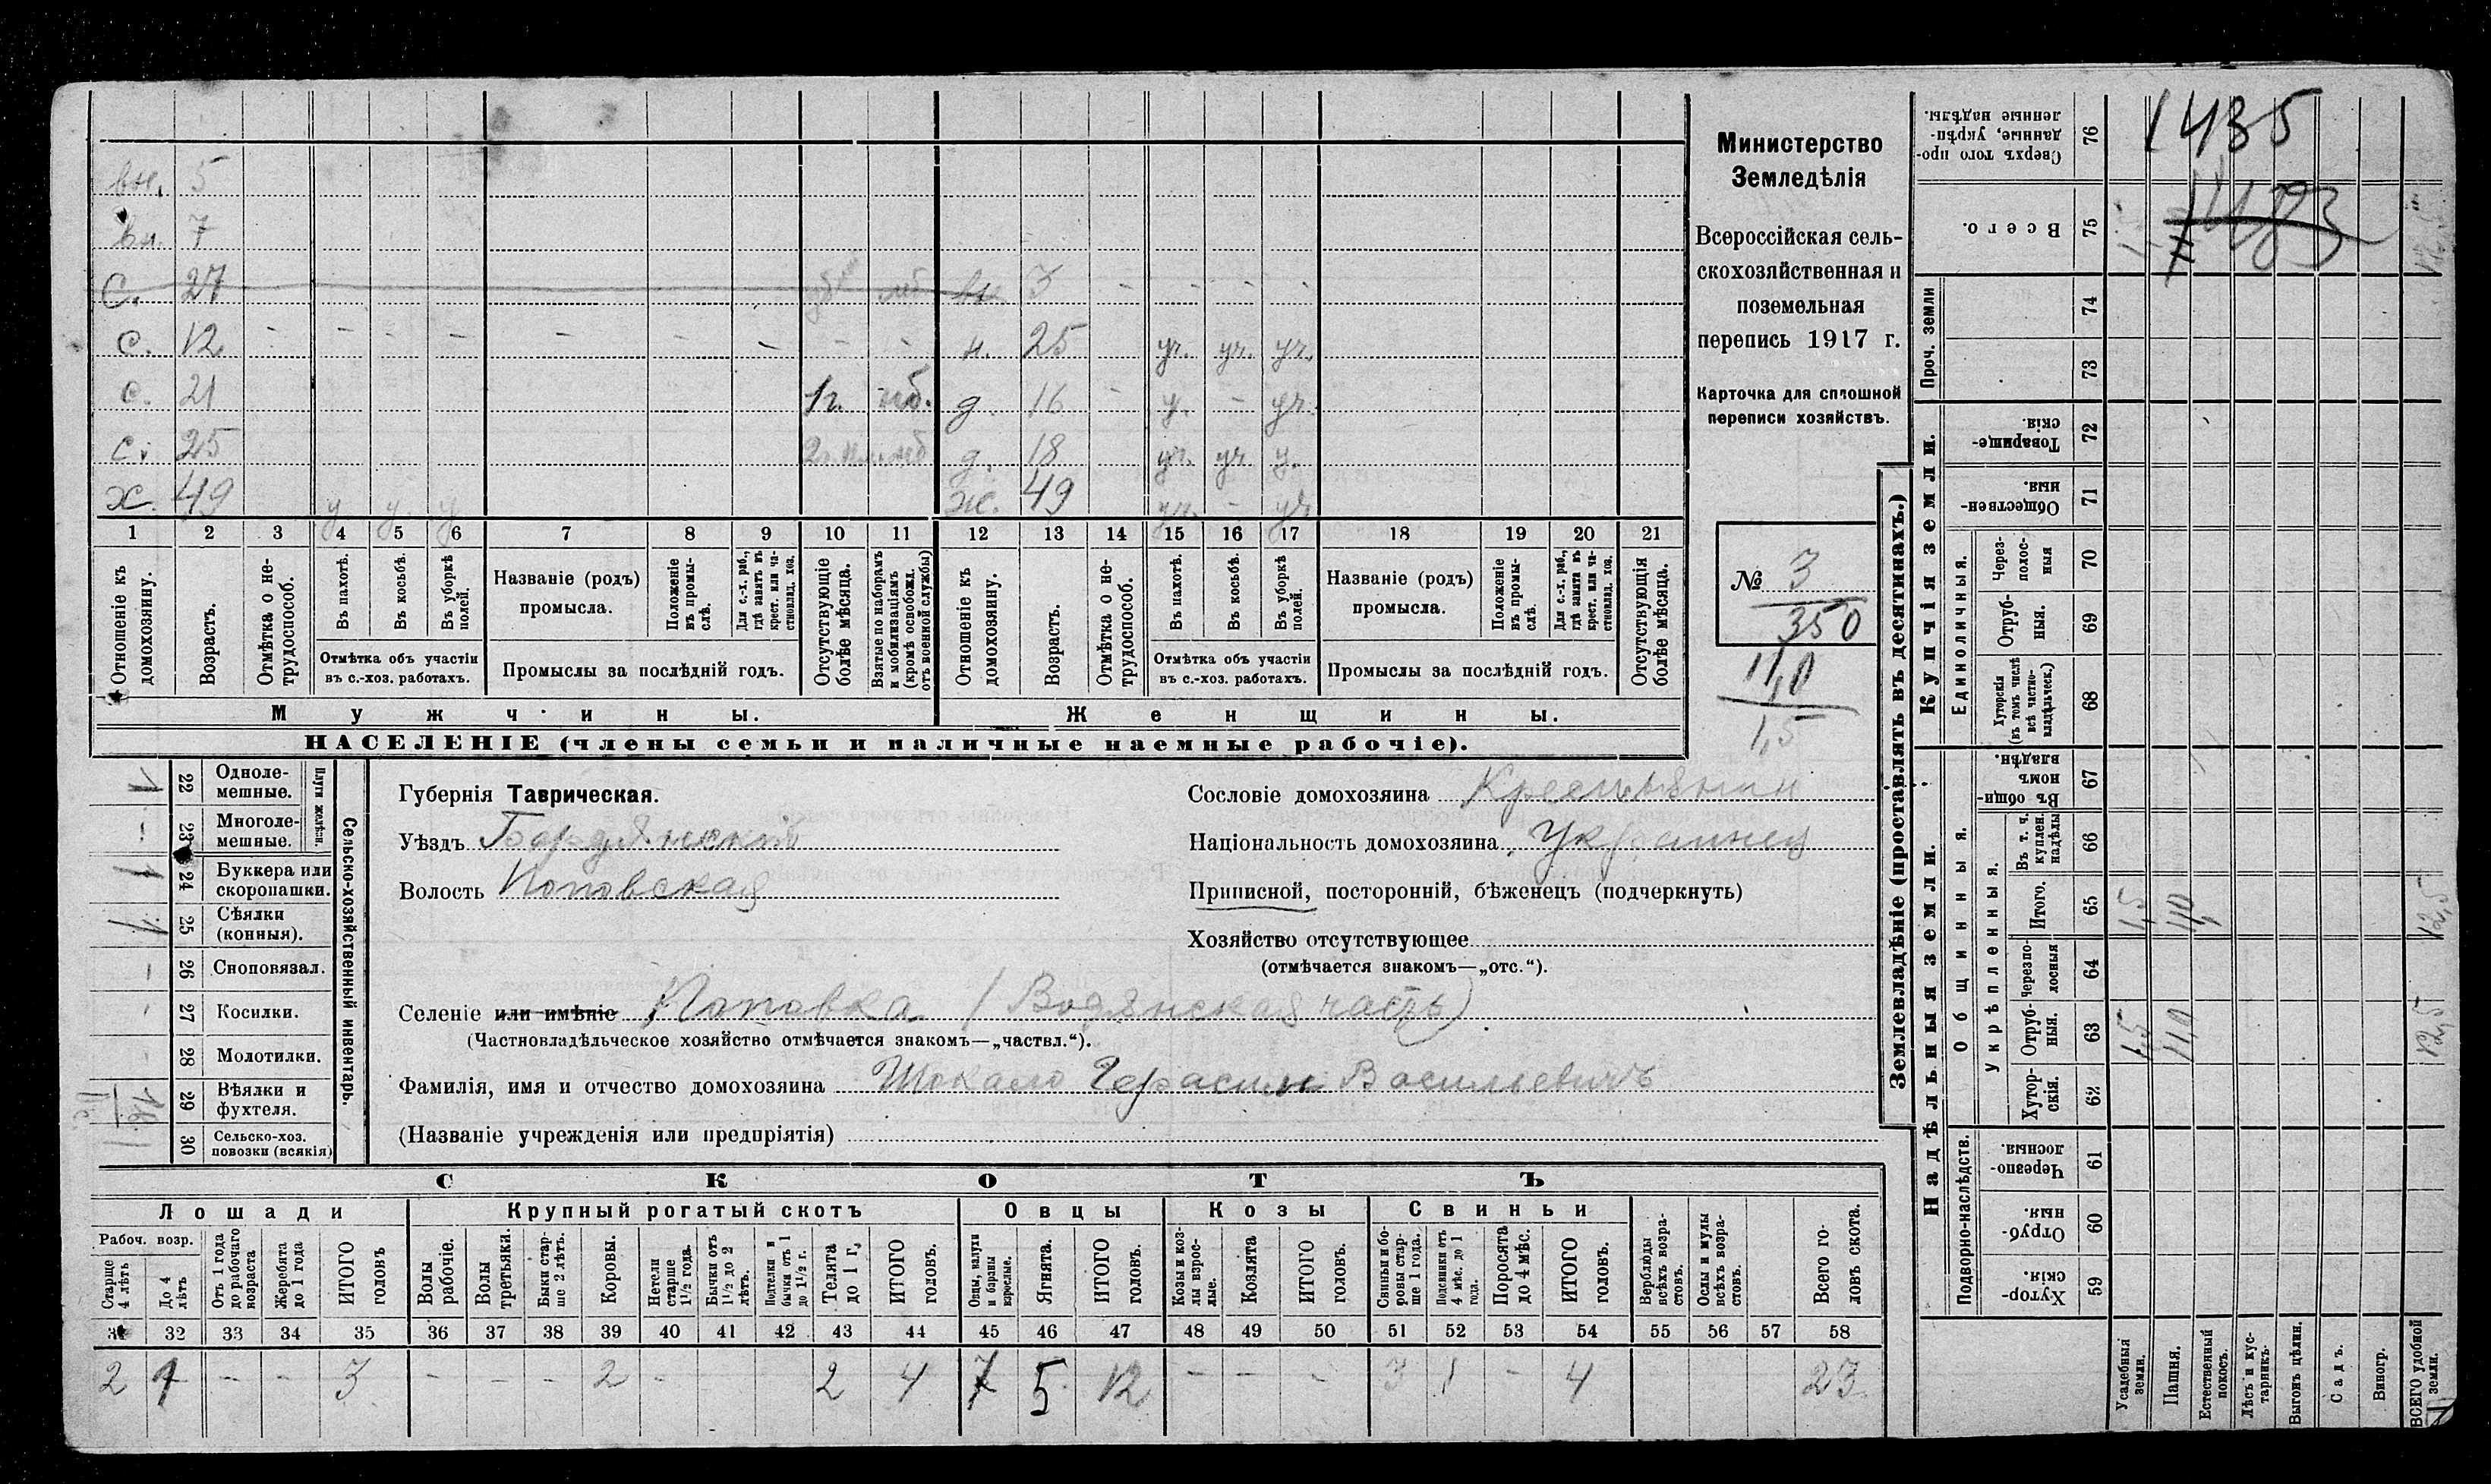 Министерство
Земледѣлія
Всероссійская сель-
скохозяйственная и
поземельная
перепись 1917 г.
Карточка для сплошной
переписи хозяйствъ.
№ 3
350
11,0
1,5
вн. 5
вн. 7
С. 27
вн. 3 - - - -
с. 12 - - - - - - - - -
н. 25 уч. уч. уч.
с. 21 1г. мб.
д. 16 - у. - уч.
с. 25
д. 18 уч. уч у.
х. 49 у у. у
ж. 49 уч. - уч
1 2 3 4 5 6 7 8 9 10 11 12 13 14 15 16 17 18 19 20 21
Отношеніе къ домохозяину.
Возрастъ.
Отмѣтка о не-трудоспособ.
Въ пахотѣ.
Въ косьбѣ.
Въ уборкѣ полей.
Отмѣтка объ участіи
въ с.-хоз. работахъ.
Названіе (родъ)
промысла.
Положеніе въ промы-слѣ.
Для с.-х. раб., гдѣ занятъ въ крест. или ча-стновлад. хоз.
Промыслы за послѣдній годъ.
Отсутствующіе болѣе мѣсяца.
Взятые по наборамъ и мобилизаціямъ (кромѣ освобожд. отъ военной службы)
Отношеніе къ домохозяину.
Возрастъ.
Отмѣтка о не-трудоспособ.
Въ пахотѣ.
Въ косьбѣ.
Въ уборкѣ полей.
Отмѣтка объ участіи
въ с.-хоз. работахъ.
Названіе (родъ)
промысла.
Положеніе въ промы-слѣ.
Для с.-х. раб., гдѣ занята въ крест. или ча-стновлад. хоз.
Промыслы за послѣдній годъ.
Отсутствующія болѣе мѣсяца.
Мужчины.
Женщины.
НАСЕЛЕНІЕ (члены семьи и наличные наемные рабочіе).
Сельско-хозяйственный инвентарь.
Плуги желѣзн.
1 22 Одноле-мешные.
- 23 Многоле-мешные.
1 24 Буккера или скоропашки.
1 25 Сѣялки (конныя).
- 26 Сноповязал.
- 27 Косилки.
- 28 Молотилки.
29 Вѣялки и фухтеля.
30 Сельско-хоз. повозки (всякія)
Губернія Таврическая.
Уѣздъ Бердянскій
Волость Поповская
Сословіе домохозяина Крестьянин
Національность домохозяина Украинец
Приписной, посторонній, бѣженецъ (подчеркнуть)
Хозяйство отсутствующее
(отмѣчается знакомъ—„отс.“).
Селеніе или имѣніе Поповка (Водянская часть)
(Частновладѣльческое хозяйство отмѣчается знакомъ—„частвл.“).
Фамилія, имя и отчество домохозяина Шокало Герасим Васильевичъ
(Названіе учрежденія или предпріятія)
СКОТЪ
Лошади
Крупный рогатый скотъ
Овцы
Козы
Свиньи
Рабоч. возр.
Старше 4 лѣтъ
До 4 лѣтъ
Отъ 1 года до рабочаго возраста
Жеребята до 1 года
ИТОГО головъ
Волы рабочіе.
Волы третьяки.
Быки стар-ше 2 лѣтъ.
Коровы.
Нетели старше 1½ года.
Бычки отъ 1½ до 2 лѣтъ.
Подтелки и бычки отъ 1 до 1½ г.
Телята до 1 г.
ИТОГО головъ.
Овцы, валухи и бараны взрослые.
Ягнята.
ИТОГО головъ.
Козы и коз-лы взрос-лые.
Козлята
ИТОГО головъ.
Свиньи и бо-ровы стар-ше 1 года.
Подсвинки отъ 4 мѣс. до 1 года.
Поросята до 4 мѣс.
ИТОГО головъ.
Верблюды всѣхъ возра-стовъ.
Ослы и мулы всѣхъ возра-стовъ.
Всего го-ловъ скота.
31 32 33 34 35 36 37 38 39 40 41 42 43 44 45 46 47 48 49 50 51 52 53 54 55 56 57 58
2 1 - - 3 - - - 2 - 2 4 7 5 12 - - - 3 1 - 4 23
Землевладѣніе (проставлять въ десятинахъ.)
Надѣльныя земли.
Купчія земли.
Проч. земли
Подворно-наслѣдств.
Общинныя.
Укрѣпленныя.
Единоличныя.
76 Сверхъ того про-данные, укрѣп-ленные надѣлы.
1435
75 Всего.
1483
74
73
72 Товарище-скія.
71 Обществен-ныя.
70 Через-полос-ныя
69 Отруб-ныя.
68 Хуторскія (въ томъ числѣ всѣ частно-владѣльческ.)
67 Въ общи-номъ владѣн.
66 Въ т. ч. куплен. надѣлы
65 Итого. 1,5 11,0 12,5
64 Черезпо-лосныя
63 Отруб-ныя. 1,5 11,0 12,5
62 Хутор-скія.
61 Черезпо-лосныя.
60 Отруб-ныя.
59 Хутор-скія.
Усадебныя земли.
Пашня.
Естественный покосъ.
Лѣсъ и кус-тарникъ.
Выгонъ цѣлин.
Садъ.
Виногр.
ВСЕГО удобной земли.